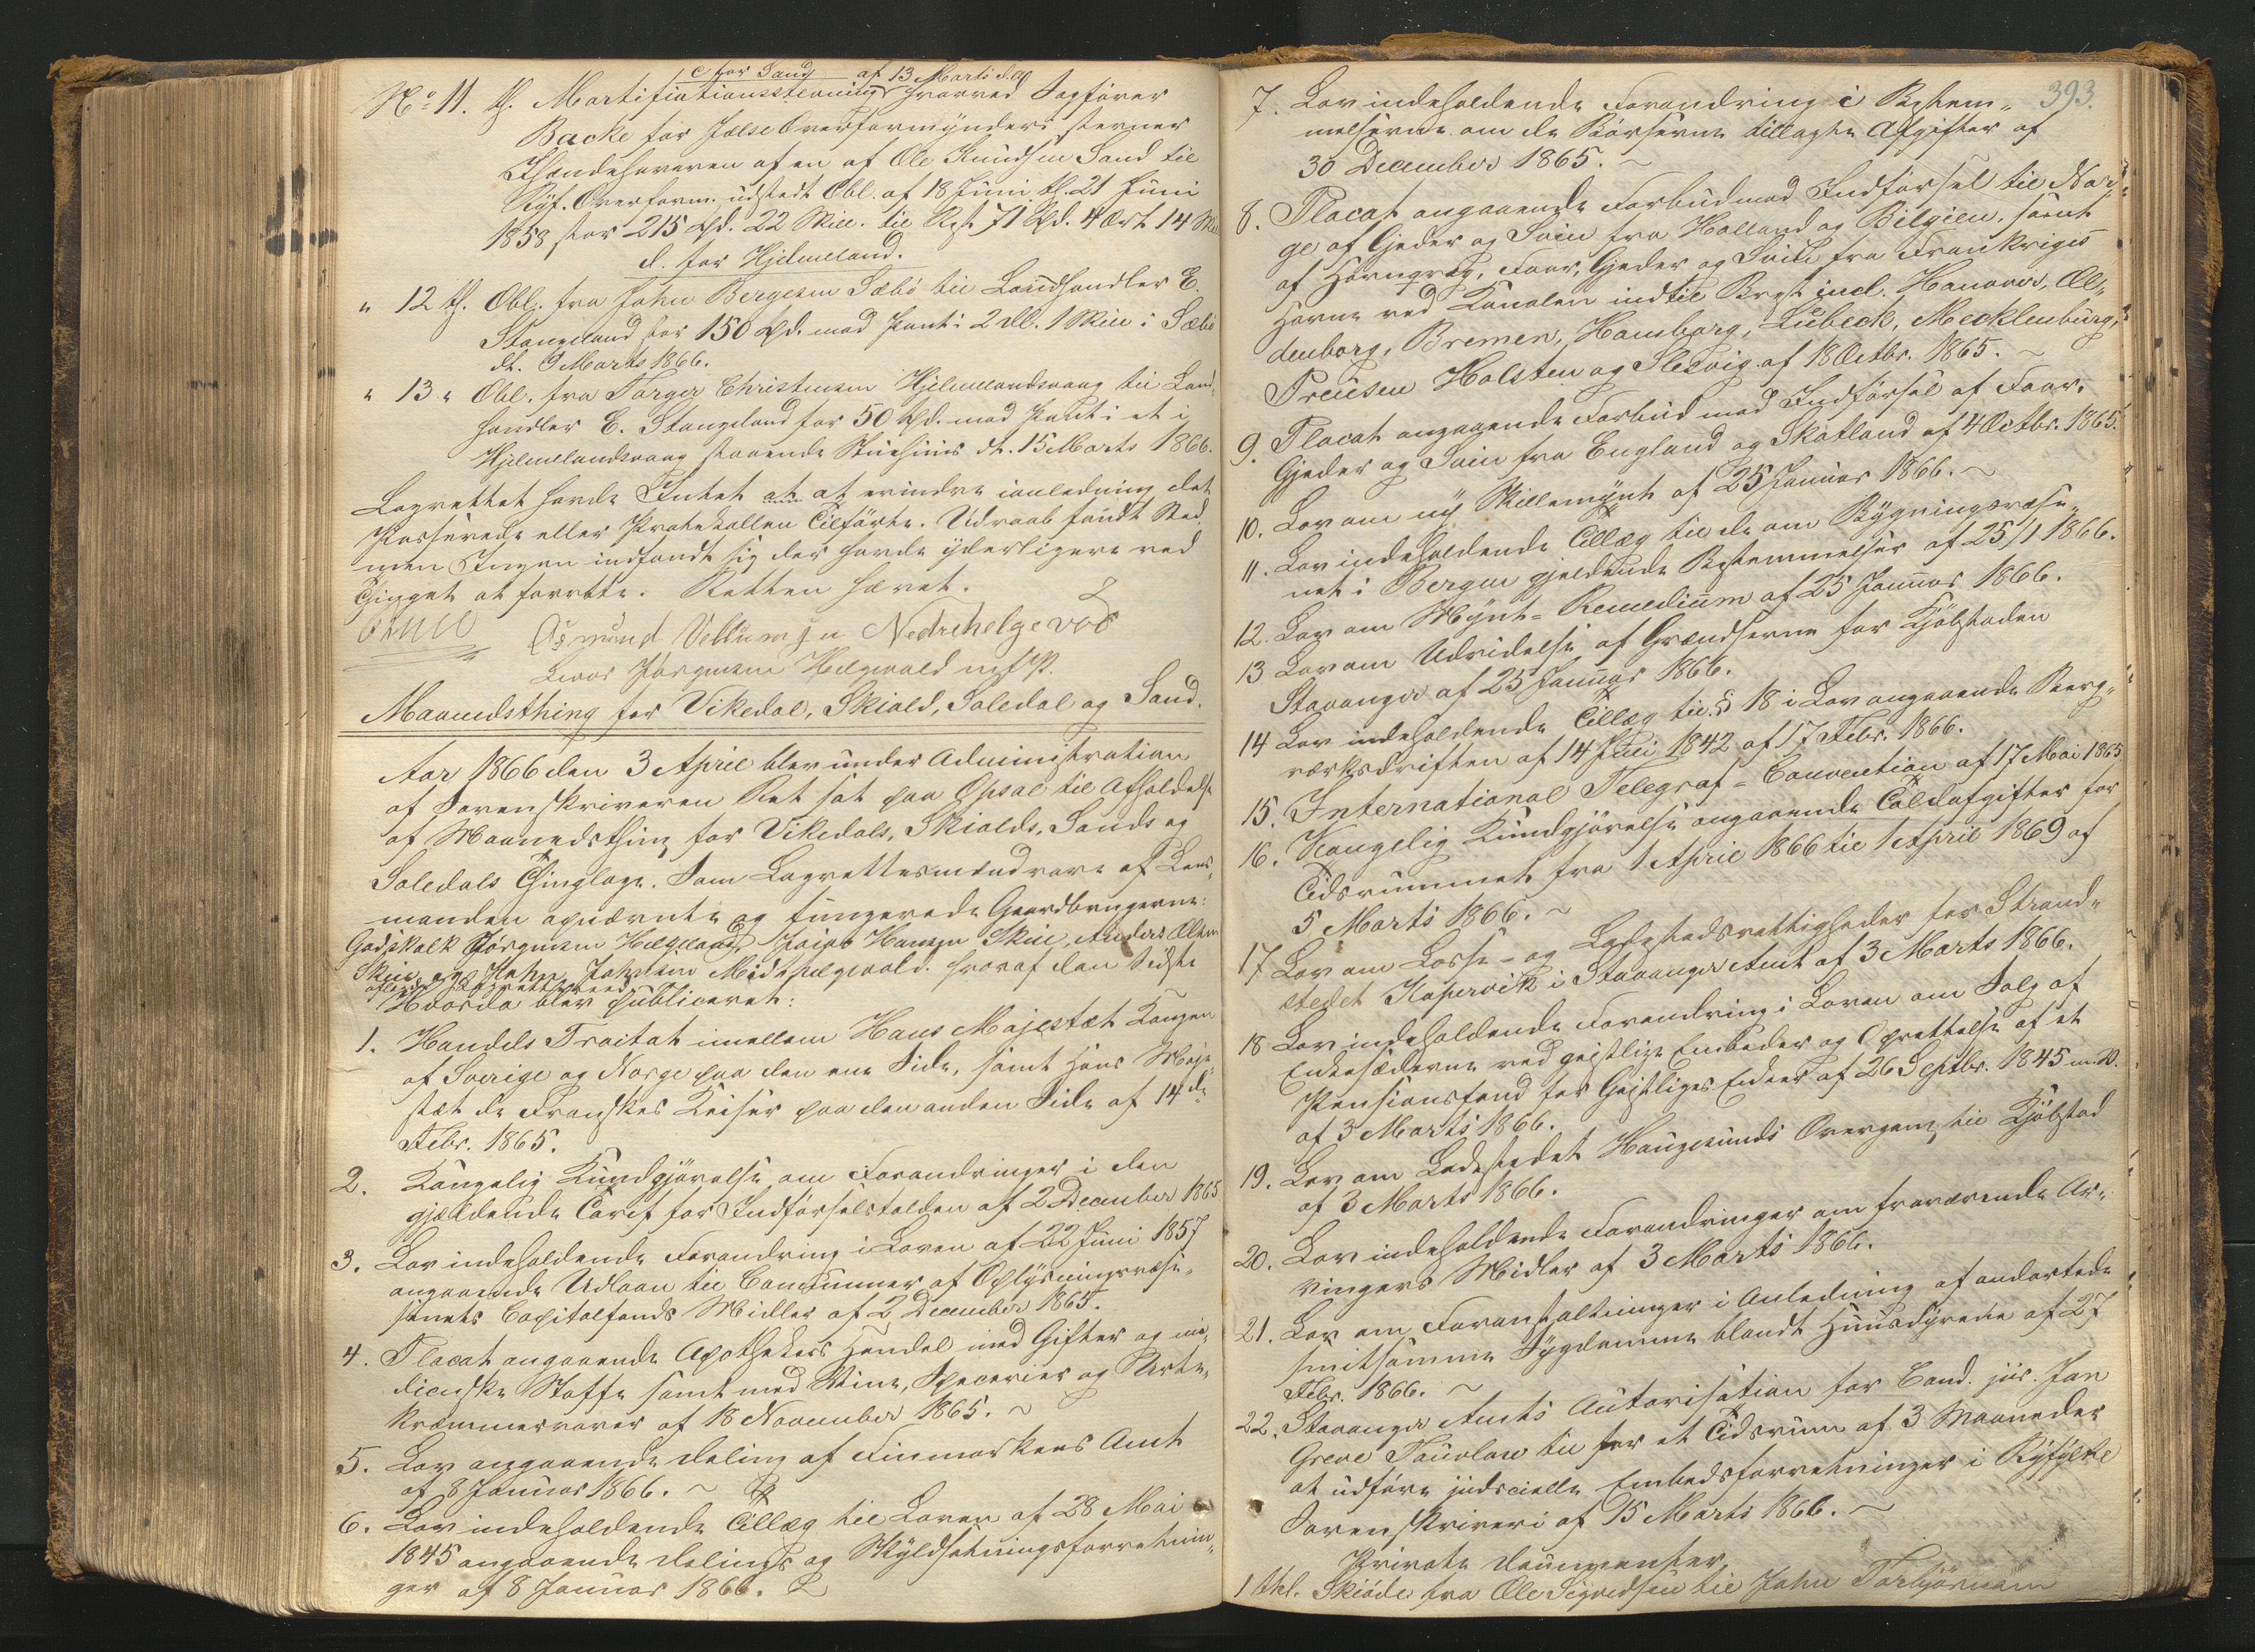 c for Sand af 13 Marts d.a.
No 11. th. Mortificationsstevning hvorved Sagfører
Backe for Jælse Overformynderi stevner
Ihændehaveren af en af Ole Knudsen Sand til
Ryf. Overform. udstedt Obl. af 18 Juni th. 21 Juni
1858 stor 215 Spd. 22 Skill. til Rest 71 Spd. 4 Ort 14 Sk
d. for Hjelmeland.
" 12 th. Obl. fra John Bergesen Sæbø til Landhandler E.
Stangeland for 150 Spd. mod Pant i 2 Dl. 1 Skill i Sæbø
dt. 9 Marts 1866.
" 13 " Obl. fra Torger Christensen Hjelmelandsvaag til Land-
handler E. Stangeland for 50 Spd. mod Pant i et i
Hjelmelandsvaag staaende Stuehuus dt. 15 Marts 1866.
Lagrettet havde Intet at at erindre i anledning det
Passerede eller Protokollen Tilførte. Udraab fandt Sted
men Ingen indfandt sig der havde yderligere ved
Thinget at forrette. Retten hævet.
Asmund Vellumsen Nedrehelgevold
Maanedsthing for Vikedal, Skiold, Soledal og Sand.
Aar 1866 den 3 April blev under Administration
af Sorenskriveren Ret sat paa Opsal til Afholdelse
af Maanedsthing for Vikedals, Skiolds, Sands og
Soledals Thinglage. Som Lagrettesmænd vare af Lens-
manden opnævnte og fungerede Gaardbrugerne:
Godskalk Jørgensen Helgeland, Hansen Skiie, Anders Olsen
Skiie, og John Johnsen Midthelgevold. hvoraf den sidste
aflagde Lagretteseed
Hvorda blev publiceret:
1. Handels Tractat imellem Hans Majestæt Kongen
af Sverige og Norge paa den ene Side, samt Hans Maje-
stæt de Franskes Keiser paa den anden Side af 14de
Febr. 1865.
2. Kongelig Kundgjørelse om Forandringer i den
gjældende Tarif for Indførselstolden af 2 December 1865
3. Lov indeholdende Forandring i Loven af 22 Juni 1857
angaaende Udlaan til Communer af Oplysningsvæse-
senets Capitalfonds Midler af 2 December 1865.
4. Placat angaaende Apothekers Handel med Gifter og me-
dicinske Stoffe samt med Vine, Specerier og Urte-
kræmmervarer af 18 November 1865. ~
5. Lov angaaende Deling af Finmarkens Amt
af 8 Januar 1866. ~
6. Lov indeholdende Tillæg til Loven af 28 Mai
1845 angaaende Delings og Skyldsætningsforretnin-
ger af 8 Januar 1866.
393.
7. Lov indeholdende Forandring i Bestem-
melserne om de Børserne tillagte Afgifter af
30 December 1865. ~
8. Placat angaaende Forbud mod Indførsel til Nor-
ge af Gjeder og Sviin fra Holland og Bilgien, samt
af Hornqvæg, Faar, Gjeder og Sviin fra Frankriges
Havne ved Kanalen indtil Brest incl. Hanover, Ol-
denborg, Bremen, Hamborg, Lübeck, Mecklenburg,
Preusen Holsten og Slesvig af 18 Octbr. 1865. ~
9. Placat angaaende Forbud mod Indførsel af Faar,
Gjeder og Sviin fra England og Skotland af 4 Octbr. 1865.
10. Lov om ny Skillemynt af 25 Januar 1866. ~
11. Lov indeholdende Tillæg til de om Bygningsvæse-
net i Bergen gjældende Bestemmelser af 25/1 1866.
12. Lov om Mynt-Remedium af 25 Januar 1866.
13 Lov om Udvidelse af Grændserne for Kjøbstaden
Stavanger af 25 Januar 1866.
14 Lov indeholdende Tillæg til § 18 i Lov angaaende Berg-
værksdriften af 14 Juli 1842 af 17 Febr. 1866.
15. International Telegraf-Convention af 17 Mai 1865
16. Kongelig Kundgjørelse angaaende Toldafgifter for
Tidsrummet fra 1 April 1866 til 1 April 1869 af
5 Marts 1866. ~
17 Lov om Losse- og Ladestedsrettigheder for Strand-
stedet Kopervik i Stavanger Amt af 3 Marts 1866.
18 Lov indeholdende Forandring i Loven om Salg af
Enkesæderne ved geistlige Embeder og Oprettelse af et
Pensionsfond for Geistliges Enker af 26 Septbr. 1845 m.V.
af 3 Marts 1866.
19. Lov om Ladestedet Haugesunds Overgang til Kjøbstad
af 3 Marts 1866.
20. Lov indeholdende Forandringer om fraværende Ar-
vingers Midler af 3 Marts 1866.
21. Lov om Foranstaltninger i Anledning af ondartede
smitsomme Sygdomme blandt Huusdyrene af 27
Febr. 1866. ~
22. Stavanger Amts Autorisation for Cand. jur. Jan
Greve Thaulow til for et Tidsrum af 3 Maaneder
at udføre judicielle Embedsforretninger i Ryfylke
Sorenskriveri af 15 Marts 1866. ~
Private Documenter.
1 thl. Skiøde fra Ole Sigvedsen til John Torbjørnsen